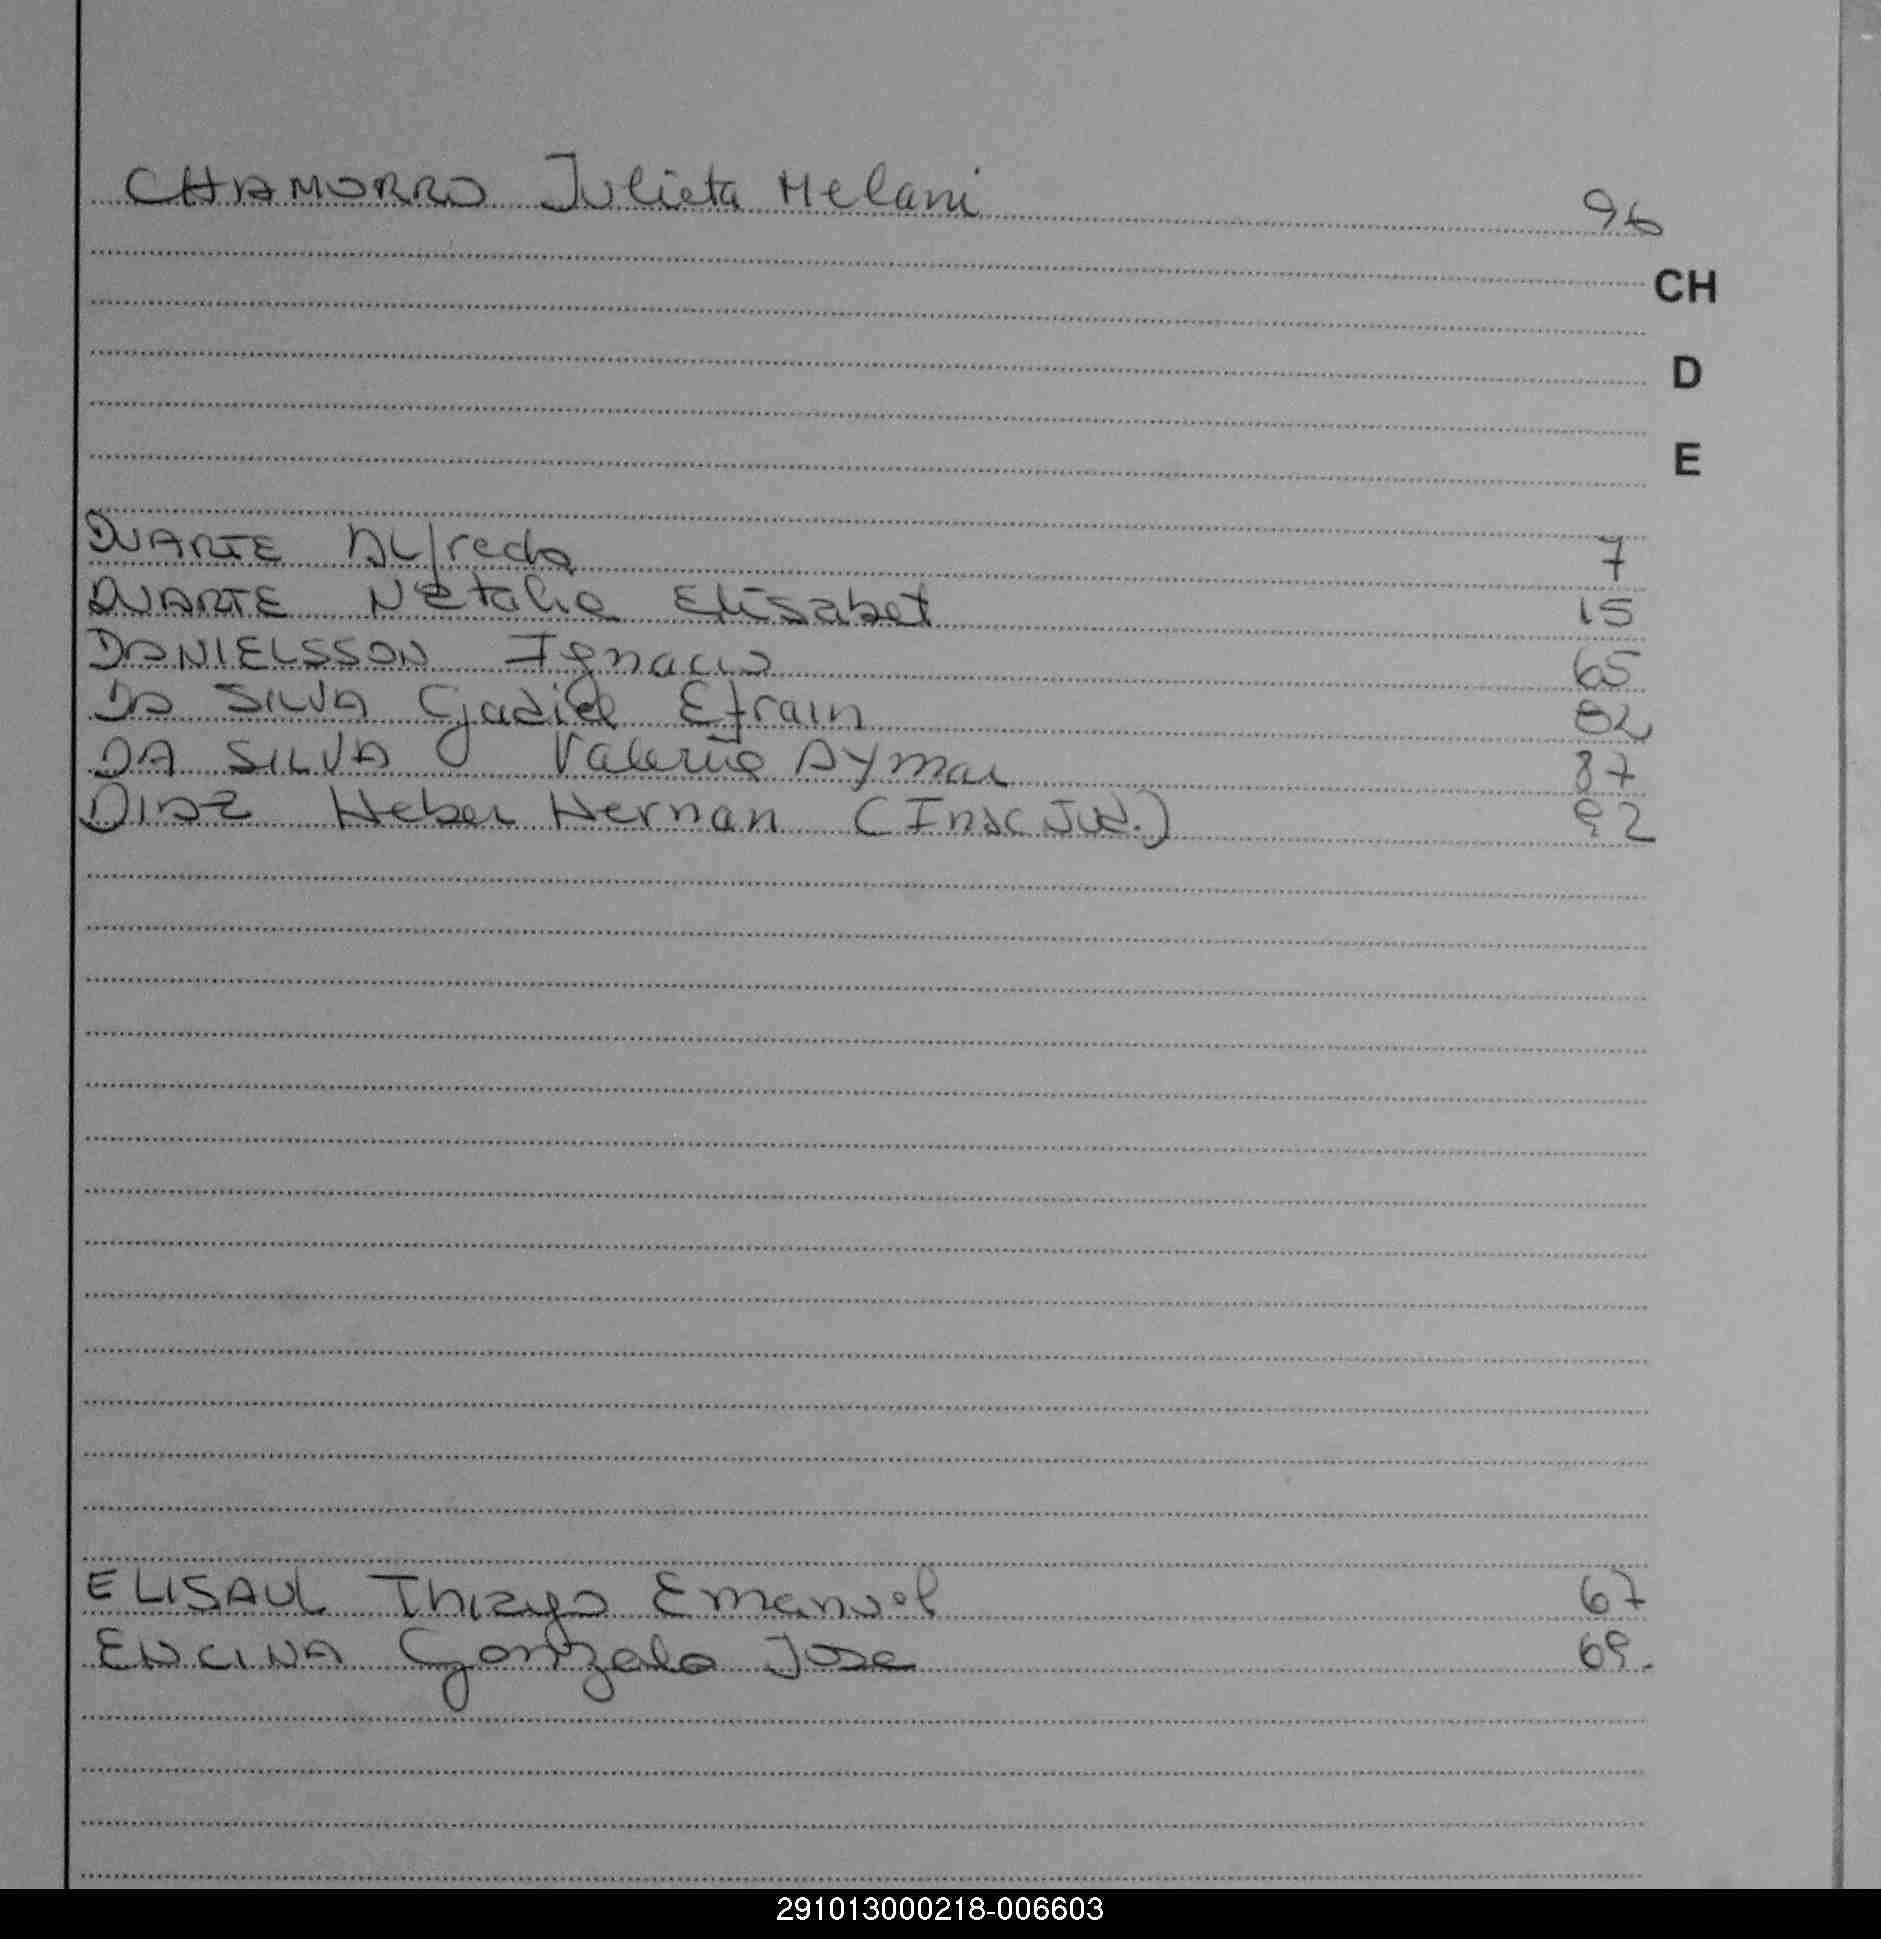 CHAMORRO Julieta Melani 96
CH
D
E
DUARTE Alfredo 7
DUARTE Natalia Elisabet 15
DANIELSSON Ignacio 65
DA SILVA Gadiel Efrain 82
DA SILVA Valeria Aymar 87
DIAZ Heber Hernan (Insc Jud.) 92
ELISAUL Thiago Emanuel 67
ENCINA Gonzalo Jose 69.
291013000218-006603